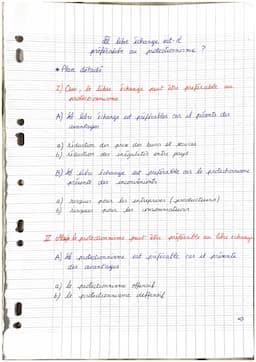 Le libre échange est-il
préférable au protectionnisme ?
• Plan détaillé
I) Oui, le libre échange peut être préférable au
protectionnisme
A) Le libre échange est préférable car il présente des
avantages
a) réduction des prix des biens et services
b) réduction des inégalités entre pays
B) Le libre échange est préférable car le protectionnisme
présente des inconvénients
a) risques pour les entreprises (producteurs)
b) risques pour les consommateurs
II Mais le protectionnisme peut être préférable au libre échange
A) Le protectionnisme est préférable car il présente
des avantages
a) le protectionnisme offensif
b) le protectionnisme défensif